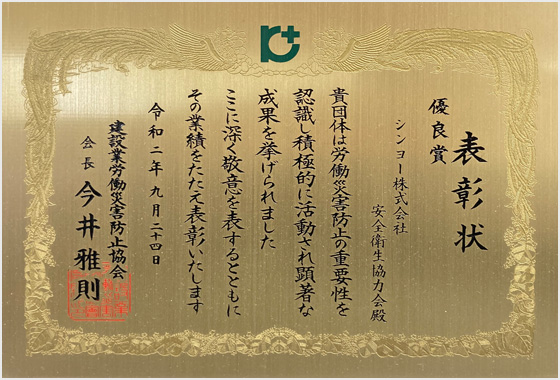 表彰状
優良賞
シンヨー株式会社
安全衛生協力会殿
貴団体は労働災害防止の重要性を
認識し積極的に活動され顕著な
成果を挙げられました
ここに深く敬意を表するとともに
その業績をたたえ表彰いたします
令和二年九月二十四日
建設業労働災害防止協会
会長 今井雅則